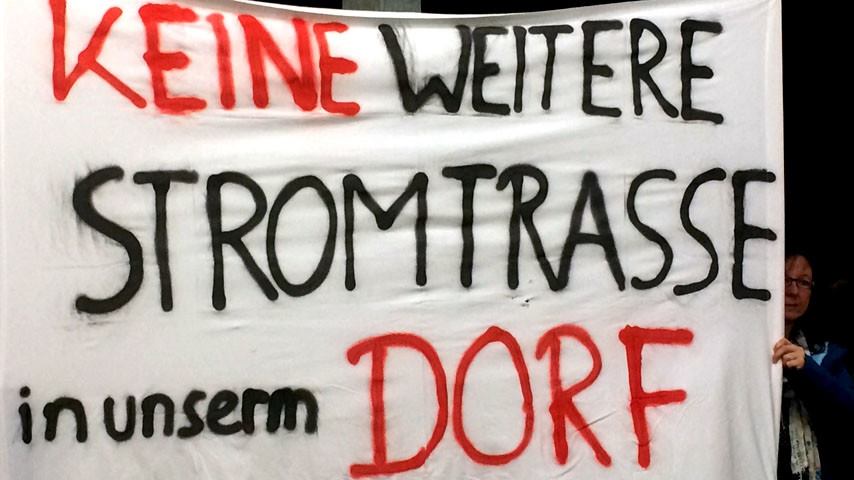 KEINE WEITERE
STROMTRASSE
in unserm DORF